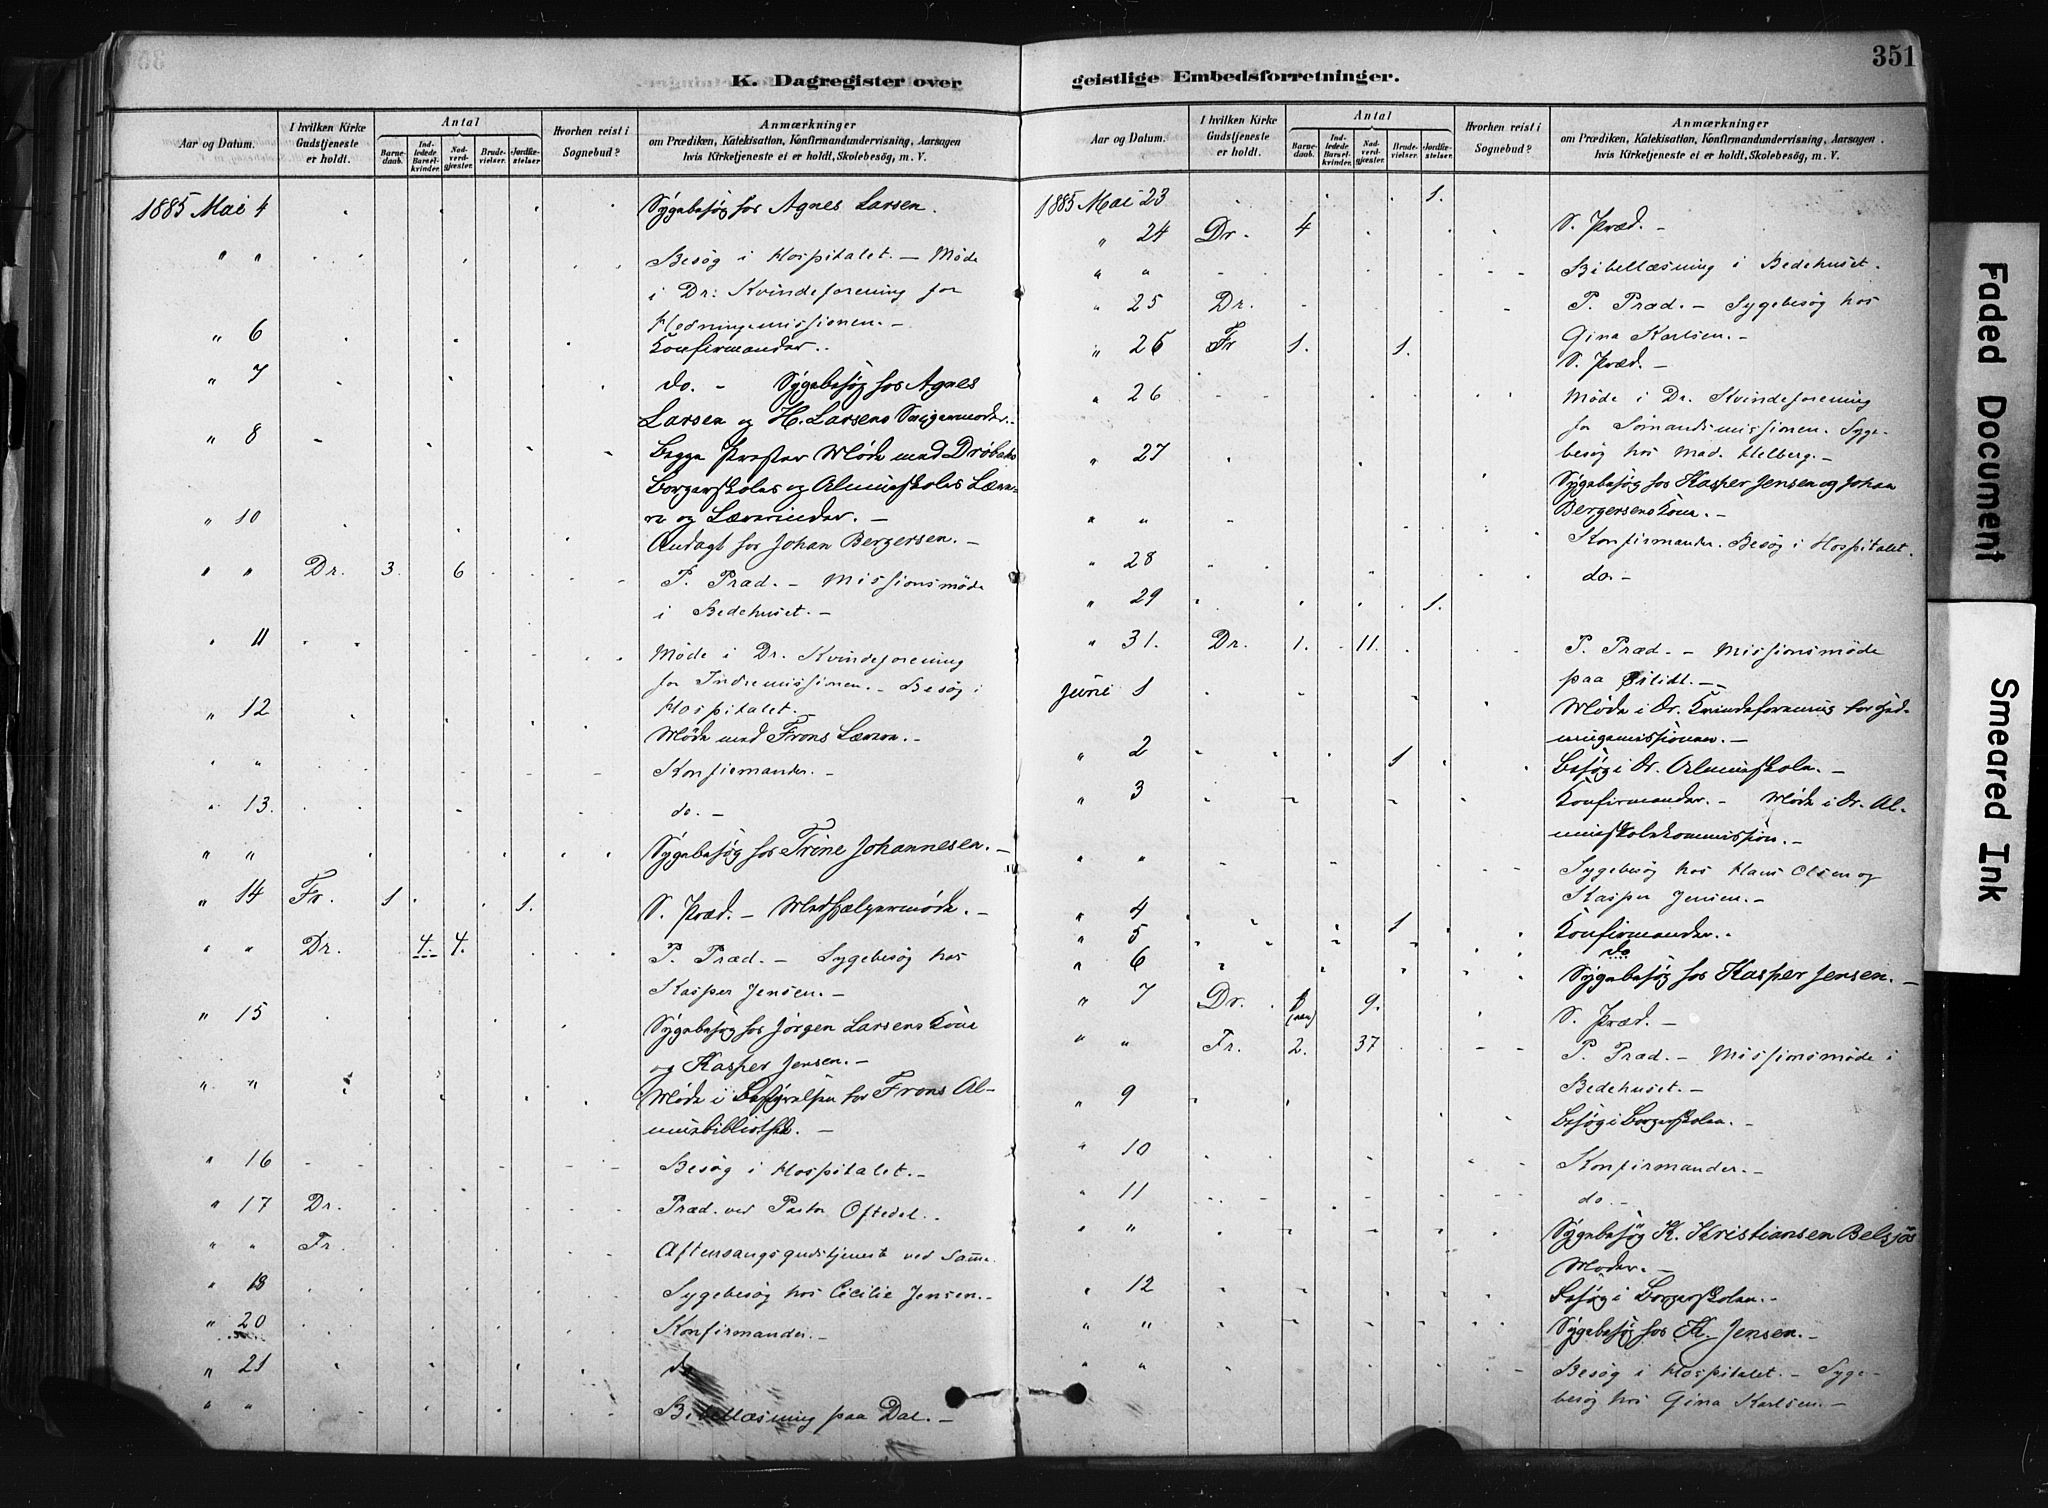 351
K. Dagregister over
geistlige Embedsforretninger.
Aar og Datum.
I hvilken Kirke Gudstjeneste er holdt.
Antal
Barnedaab.
Indledede Barselkvinder.
Nadverdgjester.
Brudevielser.
Jordfæstelser.
Hvorhen reist i Sognebud?
Anmærkninger
om Prædiken, Katekisation, Konfirmandundervisning, Aarsagen
hvis Kirketjeneste ei er holdt, Skolebesög, m. V.
1885 Mai 4 Sygebesög hos Agnes Larsen.
" " Besøg i Hospitalet. — Møde
i Dr. Kvindeforening for
Hedningemissionen. —
" 6 Konfirmander.
" 7 do. - Sygebesög hos Agnes
Larsen og H. Larsens Svigermoder. -
" 8 Begge Prester Møde med Drøbaks
Borgerskoles og Almueskoles Lære-
re og Lærerinder. —
" 10 Andagt hos Johan Bergersen. —
" " Dr. 3. 6 P. Præd. — Missionsmøde
i Bedehuset. —
" 11 Møde i Dr. Kvindeforening
for Indremissionen. — Besøg i
Hospitalet. —
" 12 Møde med Frons Lærere. —
" " Konfirmander. —
" 13. do. —
" " Sygebesøg hos Trine Johannesen. —
" 14 Fr. 1 1. S. Præd. —
" " Dr. 4. 4. P. Præd. — Sygebesøg hos
Kasper Jensen. —
" 15 Sygebesøg hos Jørgen Larsens Kone
og Kasper Jensen. —
" " Møde i Bestyrelsen for Frons Al-
muebibliothek. —
" 16 Besøg i Hospitalet. —
" 17 Dr. Præd. ved Pastor Oftedal.
" " Fr. Aftensangsgudstjeneste ved Samme.
" 18 Sygebesøg hos Cicilie Jensen. —
" 20 Konfirmander. —
" 21 do
" " Bibellæsning paa Dal. —
Aar og Datum.
I hvilken Kirke Gudstjeneste er holdt.
Antal
Barnedaab.
Indledede Barselkvinder.
Nadverdgjester.
Brudevielser.
Jordfæstelser.
Hvorhen reist i Sognebud?
Anmærkninger
om Prædiken, Katekisation, Konfirmandundervisning, Aarsagen
hvis Kirketjeneste ei er holdt, Skolebesög, m. V.
1885 Mai 23 1.
" 24 Dr. 4 S. Præd. —
" " Bibellæsning i Bedehuset.
" 25 Dr. P. Præd. — Sygebesøg hos
Gina Karlsen. —
" 26 Fr 1. 1. S. Præd. —
" 26 Møde i Dr. Kvindeforening
for Sømandsmissionen. Syge-
besøg hos Mad. Helberg. —
" 27 Sygebesøg hos Kasper Jensen og Johan
Bergersens Kone. —
" " Konfirmander. Besøg i Hospitalet.
" 28 do. —
" 29 1.
" 31. Dr. 1. 11. P. Præd. — Missionsmøde
paa
Juni 1 Møde i Dr. Kvindeforening for Hed-
ningemissionen. —
" 2 1 Besøg i Dr. Almueskole. —
" 3 Konfirmander. — Møde i Dr. Al-
mueskolekommission. —
" " Sygebesøg hos Hans Olsen og
Kasper Jensen. —
" 4 1 Konfirmander.
" 5 do
" 6 Sygebesøg hos Kasper Jensen. —
" 7 Dr. 9. S. Præd. —
" " Fr. 2. 37 P. Præd. — Missionsmøde i
Bedehuset. —
" 9 Besøg i Borgerskolen. —
" 10 Konfirmander. —
" 11 do. —
" " Sygebesøg K. Kristiansen Belsjøs
Moder. —
" 12 Besøg i Borgerskolen. —
" " Sygebesøg hos K. Jensen. —
" " Besøg i Hospitalet. — Syge-
besøg hos Gina Karlsen. —
Faded Document
Smeared Ink